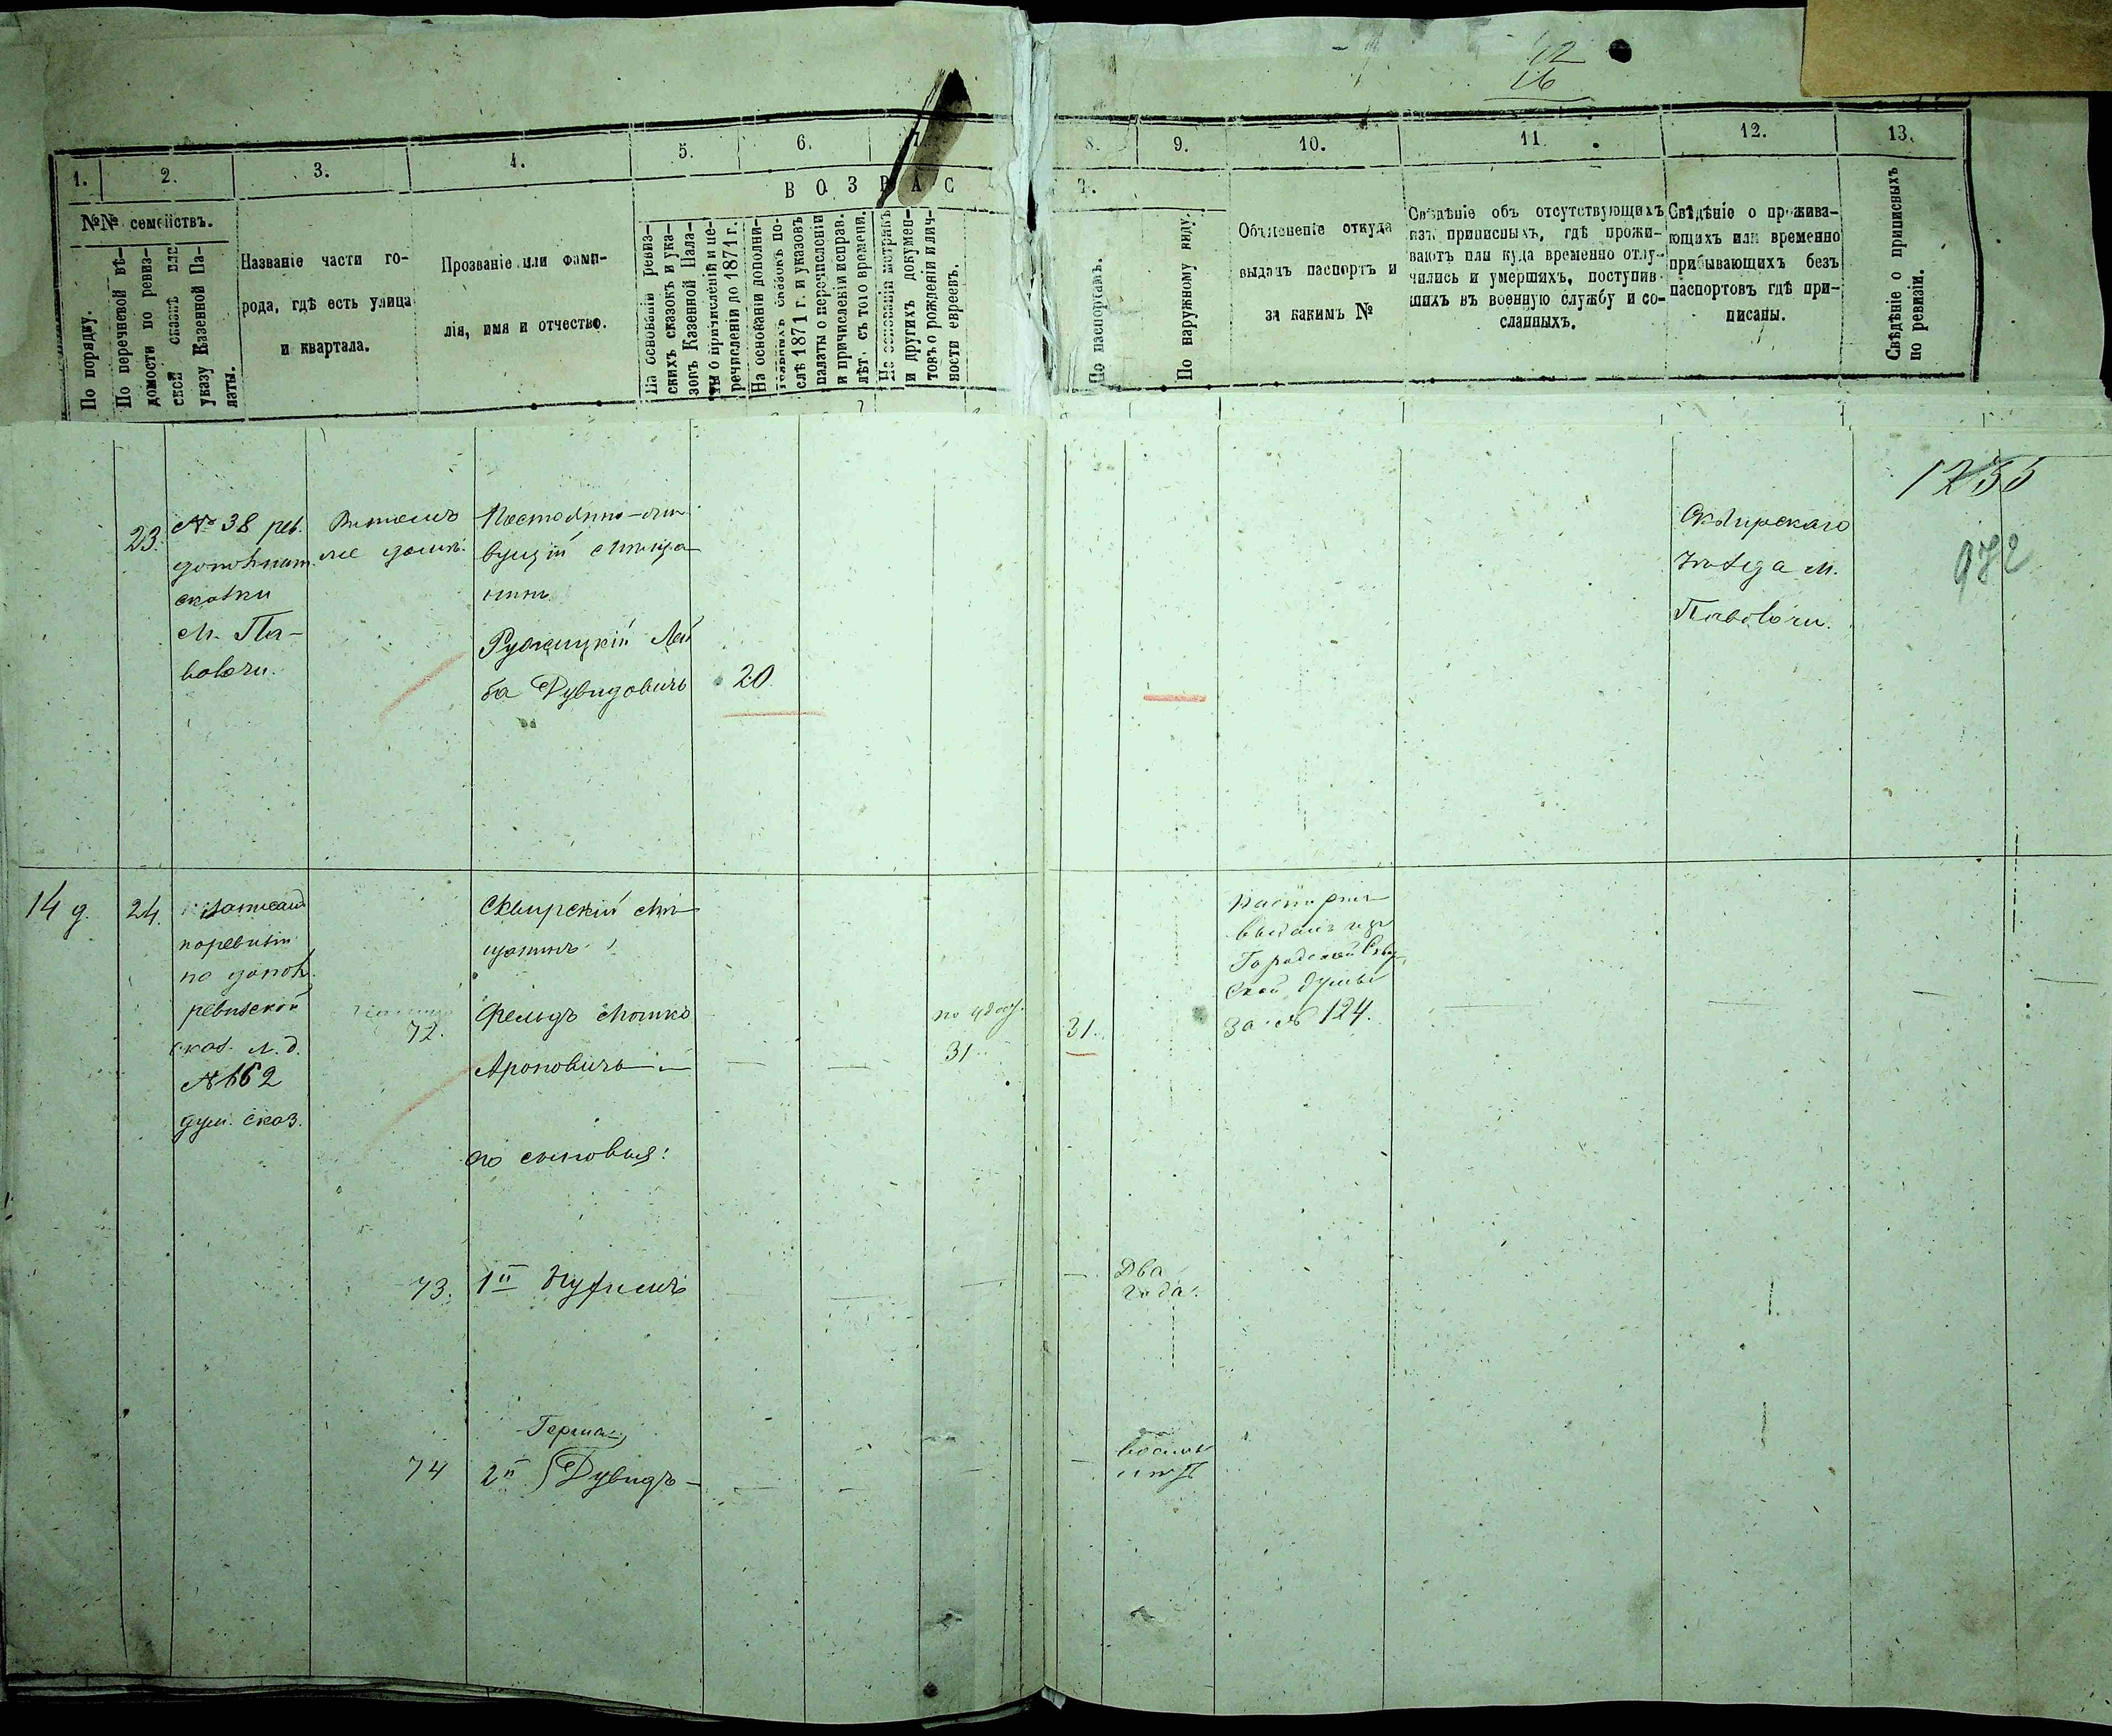 12
16
1.
2.
3.
4.
5.
6.
7.
8.
9.
10.
11.
12.
13.
ВОЗРАС
Т.
№№ семействъ.
По порядку.
По перечневой вѣ-
домости по ревиз-
ской сказкѣ или
указу Казенной Па-
латы.
Названіе части го-
рода, гдѣ есть улица
и квартала.
Прозваніе или фами-
лія, имя и отчество.
На основаніи ревиз-
скихъ сказокъ и ука-
зовъ Казенной Пала-
ты о причисленіи и пе-
речисленіи до 1871 г.
На основани дополни-
тельныхъ сказокъ по-
слѣ 1871 г. и указовъ
палаты о перечисленіи
и причисленіи исправ.
лѣт. съ того времени.
На основаніи метрикъ
и другихъ докумен-
товъ о рожденіи и лич-
ности евреевъ.
По паспортамъ.
По наружному виду.
Объясненіе откуда
выданъ паспортъ и
за какимъ №
Свѣдѣніе объ отсутствующихъ
изъ приписныхъ, гдѣ прожи-
ваютъ или куда временно отлу-
чились и умершихъ, поступив-
шихъ въ военную службу и со-
сланныхъ.
Свѣдѣніе о прожива-
ющихъ или временно
прибывающихъ безъ
паспортовъ гдѣ при-
писаны.
Свѣдѣніе о приписныхъ
по ревизіи.
1255
972
23.
№ 38 рев.
дополнит.
сказки
м. Па-
волочи.
домѣ.
Постоянно-жи-
вущій мѣща-
нинъ
Ружицкій Лей
ба Дувидовичъ
20
Сквирскаго
уѣзда м.
Паволочи.
14 д.
24.
записанъ
по ревизіи
по допол.
ревизской
сказ. м. д.
№ 162
дум. сказ.
72.
Сквирскій мѣ-
щанинъ
Фельдъ Мошко
Ароновичъ
31
31.
Паспортъ
выданъ изъ
Городской Сквир
ской думы
за № 124.
его сыновья:
73.
1й Нуфимъ
Два
года.
74
Герман
2й Дувидъ
восемь
лѣтъ